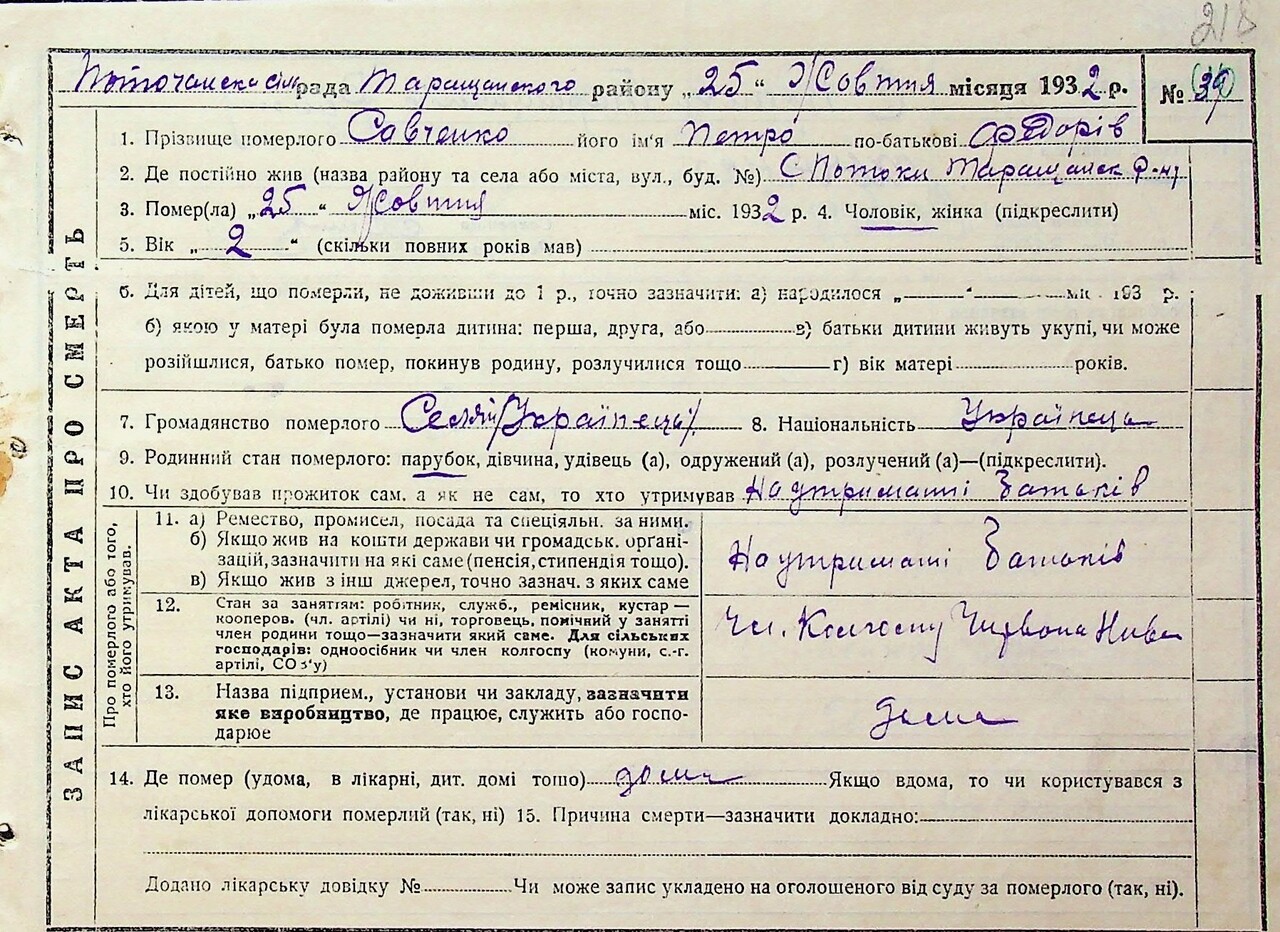 218
Поточанска сільрада Таращанского району „25“ Жовтня місяця 1932 р.
№ 39
ЗАПИС АКТА ПРО СМЕРТЬ
1. Прізвище померлого Савченко його ім'я Петро по-батькові Федорів
2. Де постійно жив (назва району та села або міста, вул., буд. №) С Потоки Таращанськ Р-ну
3. Помер(ла) „25“ Жовтня міс. 1932 р. 4. Чоловік, жінка (підкреслити)
5. Вік „2“ (скільки повних років мав)
6. Для дітей, що померли, не доживши до 1 р., точно зазначити: а) народилося „ “ міс. 193 р.
б) якою у матері була померла дитина: перша, друга, або в) батьки дитини живуть укупі, чи може
розійшлися, батько помер, покинув родину, розлучилися тощо г) вік матері років.
7. Громадянство померлого Селян/Українець/. 8. Національність Українець
9. Родинний стан померлого: парубок, дівчина, удівець (а), одружений (а), розлучений (а)—(підкреслити).
10. Чи здобував прожиток сам. а як не сам, то хто утримував На утриманні Батьків
Про померлого або того, хто його утримував.
11. а) Ремество, промисел, посада та спеціяльн. за ними.
б) Якщо жив на кошти держави чи громадськ. орґані-
зацій, зазначити на які саме (пенсія, стипендія тощо).
в) Якщо жив з інш джерел, точно зазнач. з яких саме
На утриманні Батьків
12. Стан за заняттям: робітник, служб., ремісник, кустар —
кооперов. (чл. артілі) чи ні, торговець, помічний у занятті
член родини тощо—зазначити який саме. Для сільських
господарів: одноосібник чи член колгоспу (комуни, с.-г.
артілі, СОЗ'у)
Чл. Колгоспу Червона Нива
13. Назва підприєм., установи чи закладу, зазначити
яке виробництво, де працює, служить або госпо-
дарює
дома
14. Де помер (удома, в лікарні, дит. домі тощо) дома Якщо вдома, то чи користувався з
лікарської допомоги померлий (так, ні) 15. Причина смерти—зазначити докладно:
Додано лікарську довідку № Чи може запис укладено на оголошеного від суду за померлого (так, ні).